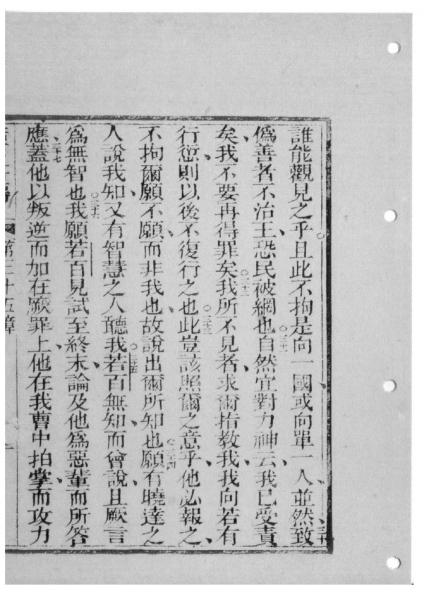 誰能觀見之乎且此不拘是向一國或向單一人並然三十致
偽善者不治王恐民被網也三十一自然宜對力神云我已受責
矣我不要再得罪矣三十二我所不見者求爾指教我我向若有
行愆則以後不復行之也三十三此豈該照爾之意乎他必報之
不拘爾願不願而非我也故說出爾所知也三十四願有曉達之
人說我知又有智慧之人聽我三十五若百無知而會說且厥言
為無智也三十六我願若百見試至終末論及他為惡輩而所答
應三十七蓋他以叛逆而加在厥罪上他在我曹中拍掌而攻力
第三十五章